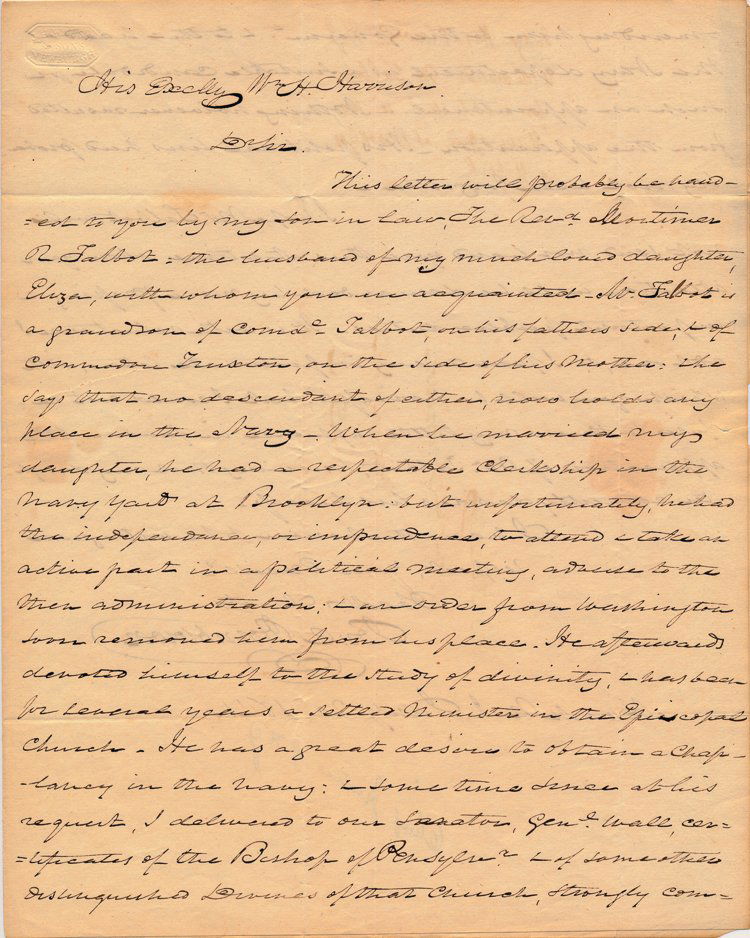 His Excelly Wm H. Harrison
D Sir.
This letter will probably be hand-
=ed to you by my son in law, The Revd. Mortimer
R Talbot = the husband of my much loved daughter,
Eliza, with whom you are acquainted - Mr Talbot is
a grandson of Comde. Talbot, on his fathers side, & of
Commodore Truxton, on the side of his Mother: & he
says that no descendant of either, now holds any
place in the Navy - When he married my
daughter, he had a respectable Clerkship in the
Navy Yard at Brooklyn: but unfortunately, he had
the independance, or imprudence, to attend & take an
active part in a political meeting, adverse to the
then administration; & an order from Washington
soon removed him from his place. He afterwards
devoted himself to the study of divinity, & has been
for several years a settled Minister in the Episcopal
Church - He has a great desire to obtain a Chap-
-lancy in the Navy: & some time since at his
request, I delivered to our Senator, Genl. Wall, cer-
=tificates of the Bishop of Pensylva. & of some other
distinguished Divines of that Church, strongly com-